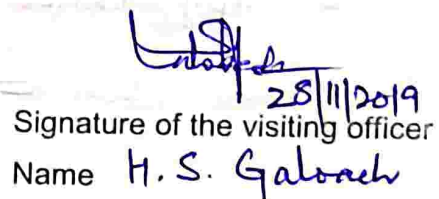 28/11/2019
Signature of the visiting officer
Name H. S.